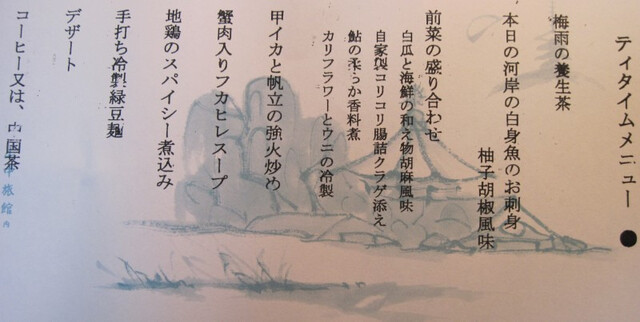 ティタイムメニュー ●
梅雨の養生茶
本日の河岸の白身魚のお刺身
柚子胡椒風味
前菜の盛り合わせ
白瓜と海鮮の和え物胡麻風味
自家製コリコリ腸詰クラゲ添え
鮎の柔らか香料煮
カリフラワーとウニの冷製
甲イカと帆立の強火炒め
蟹肉入りフカヒレスープ
地鶏のスパイシー煮込み
手打ち冷製緑豆麺
デザート
コーヒー又は、中国茶